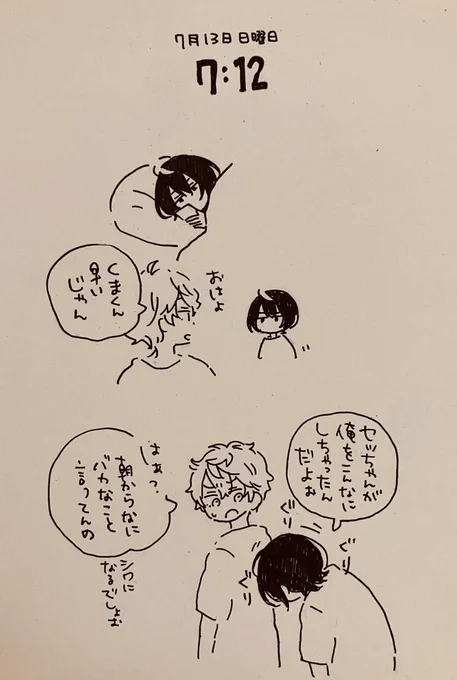 7月13日 日曜日
7:12
くまくん
早い
じゃん
おはよ
セッちゃんが
俺をこんなに
しちゃったん
だよぉ
ぐり
ぐり
ぐり
はぁっ、
朝からなに
バカなこと
言ってんの
シワに
なるでしょぉ